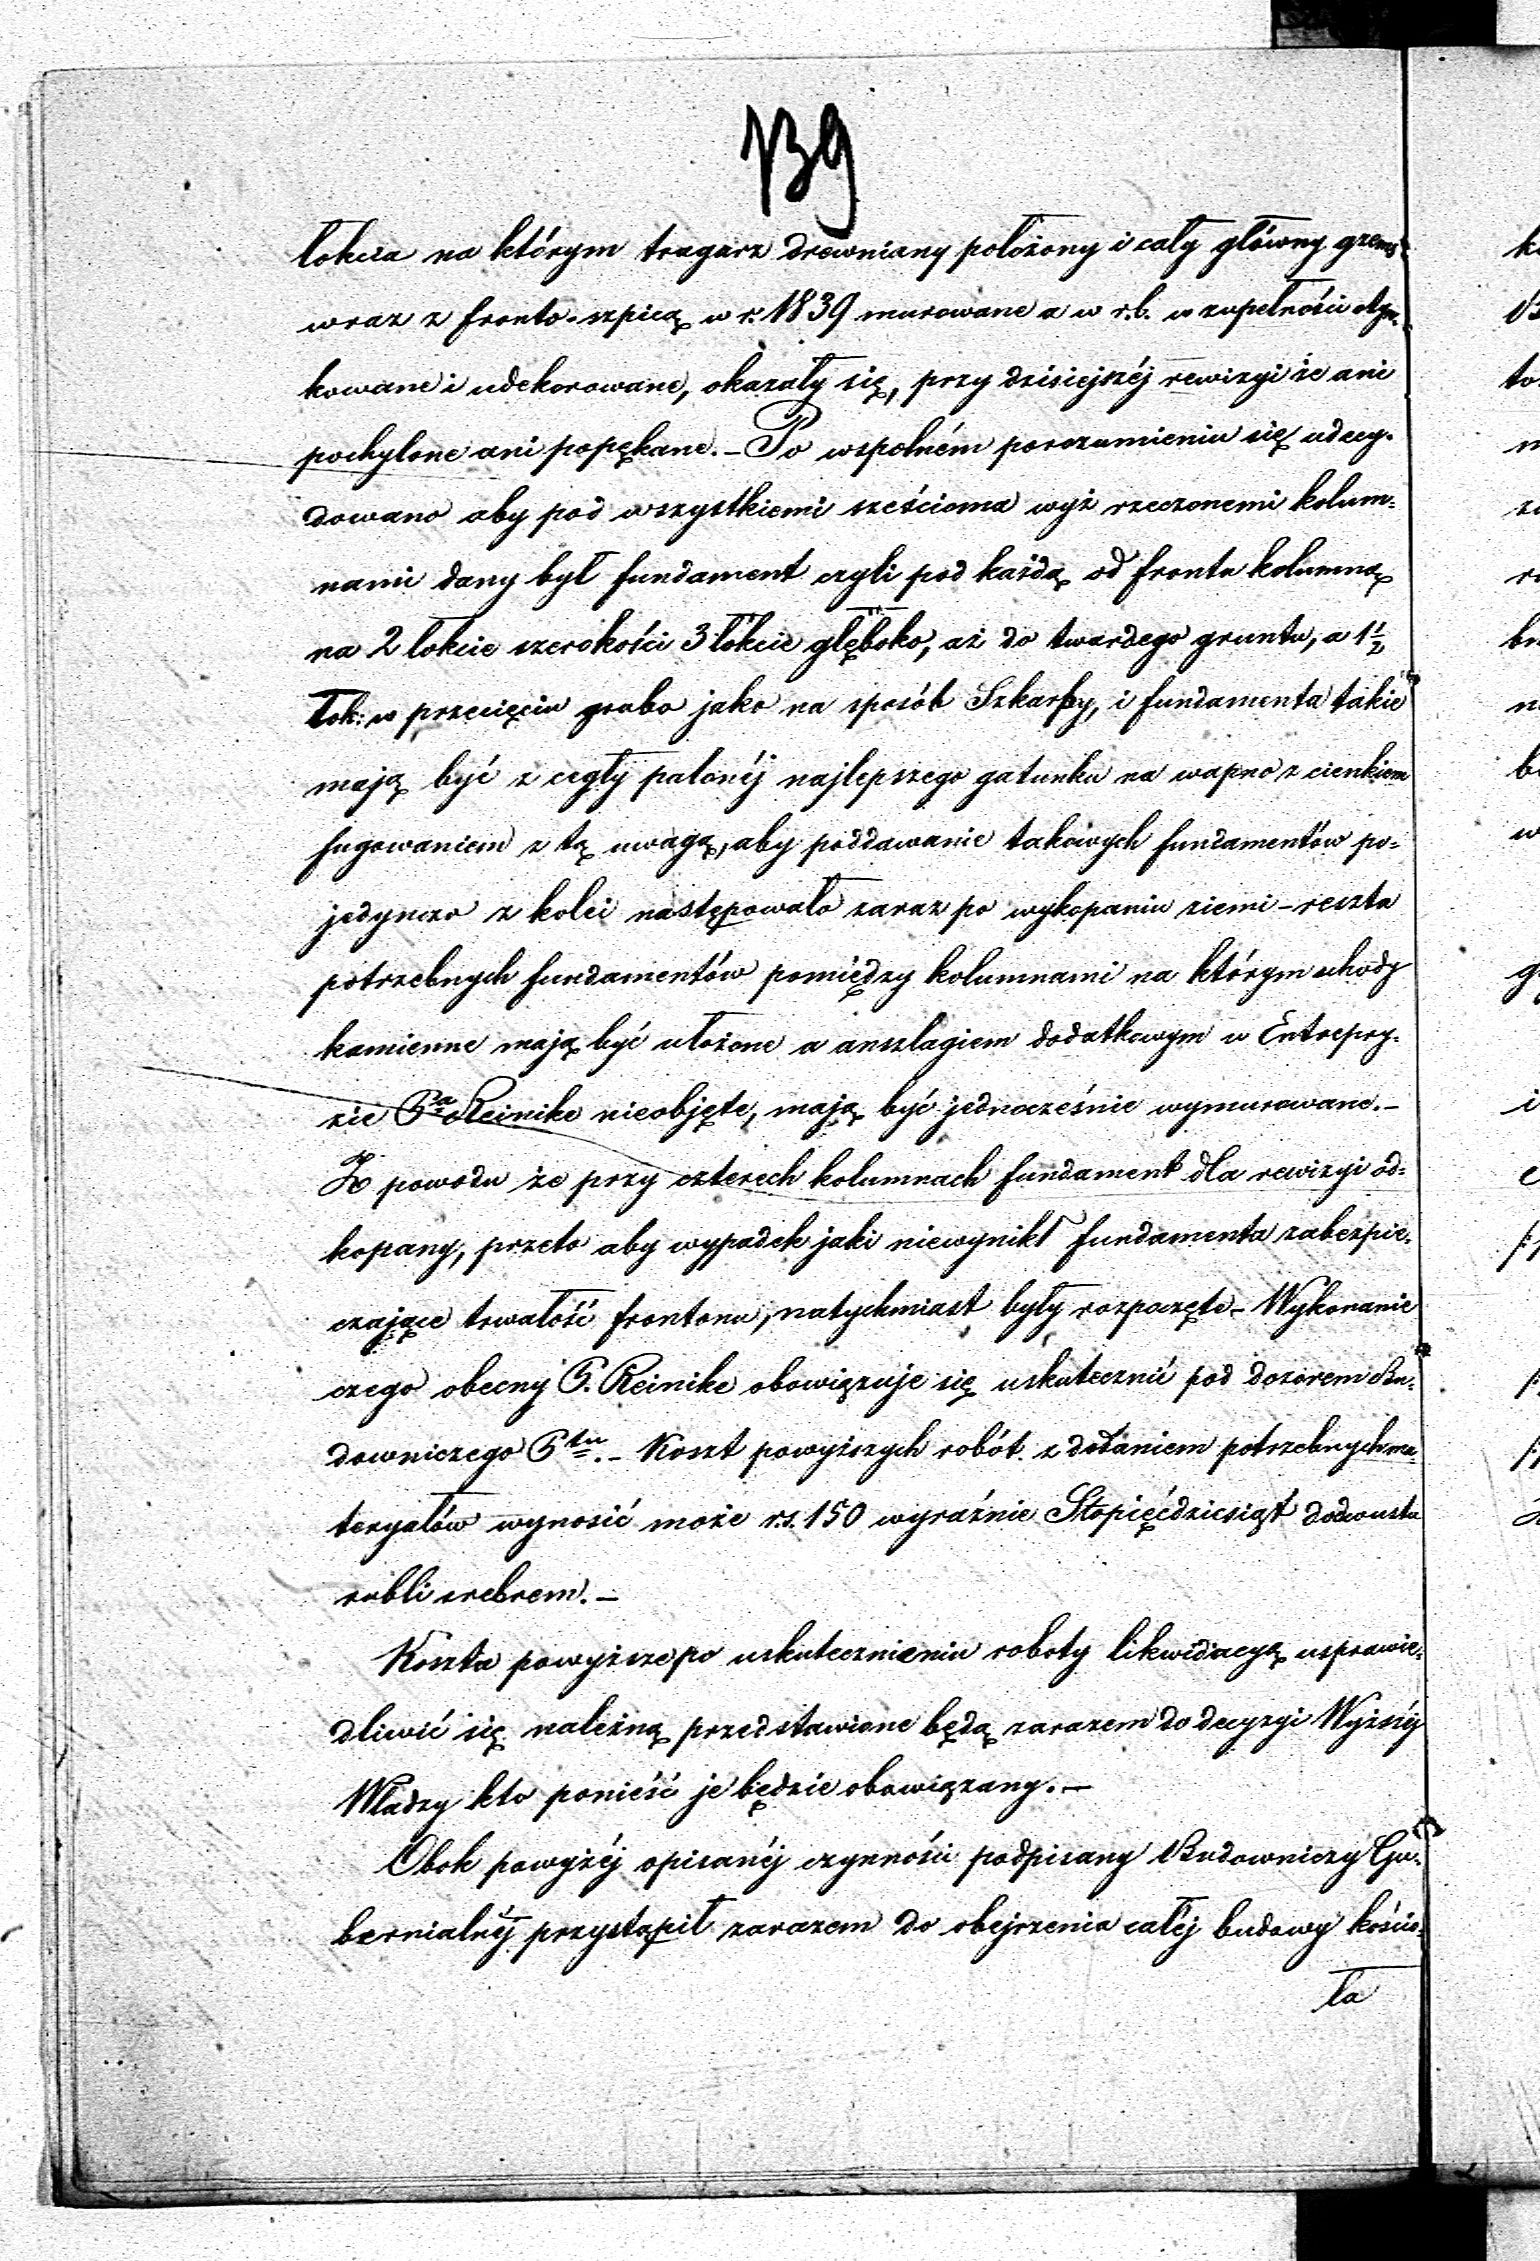 139
łokcia na którym tragarz drewniany położony i cały główny gzems
wraz z fronto-szpicą w r. 1839 murowane a w r.b. w zupełności otyn-
kowane i udekorowane, okazały się, przy dzisiejszéj rewizyi że ani
pochylone ani popękane.– Po wspolném porozumieniu się udecy-
dowano aby pod wszystkiemi sześcioma wyż rzeczonemi kolum-
nami dany był fundament czyli pod każdą od frontu kolumną
na 2 łokcie szerokości 3 łokcie głęboko, aż do twardego gruntu, a 1½
łok: w przecięciu grubo jako na sposób Szkarpy, i fundamenta takie
mają być z cegły palonéj najlepszego gatunku na wapno z cienkiem
fugowaniem z tą uwagą, aby poddawanie takowych fundamentów po-
jedynczo z kolei następowało zaraz po wykopaniu ziemi – reszta
potrzebnych fundamentów pomiędzy kolumnami na którym schody
kamienne mają być ułożone a anszlagiem dodatkowym w Entrepry-
zie Pa Reinike nieobjęte, mają być jednocześnie wymurowane.–
Z powodu że przy czterech kolumnach fundament dla rewizyi od-
kopany, przeto aby wypadek jaki niewynikł fundamenta zabezpie-
czające trwałość frontonu, natychmiast były rozpoczęte – Wykonanie
czego obecny P. Reinike obowiązuje się uskutecznić pod dozorem Bu-
downiczego Ptu.– Koszt powyższych robót z dodaniem potrzebnych ma-
teryałów wynosić może r.s. 150 wyraźnie Stopięćdziesiąt
rubli srebrem.–
Koszta powyższe po uskutecznieniu roboty likwidacyą usprawie-
dliwić się należną przedstawione będą zarazem do decyzyi Wyższéj
Władzy kto ponieść je będzie obowiązany.–
Obok powyżéj opisanéj czynności podpisany Budowniczy Gu-
bernialny przystąpił zarazem do obejrzenia całéj budowy kościo-
ła